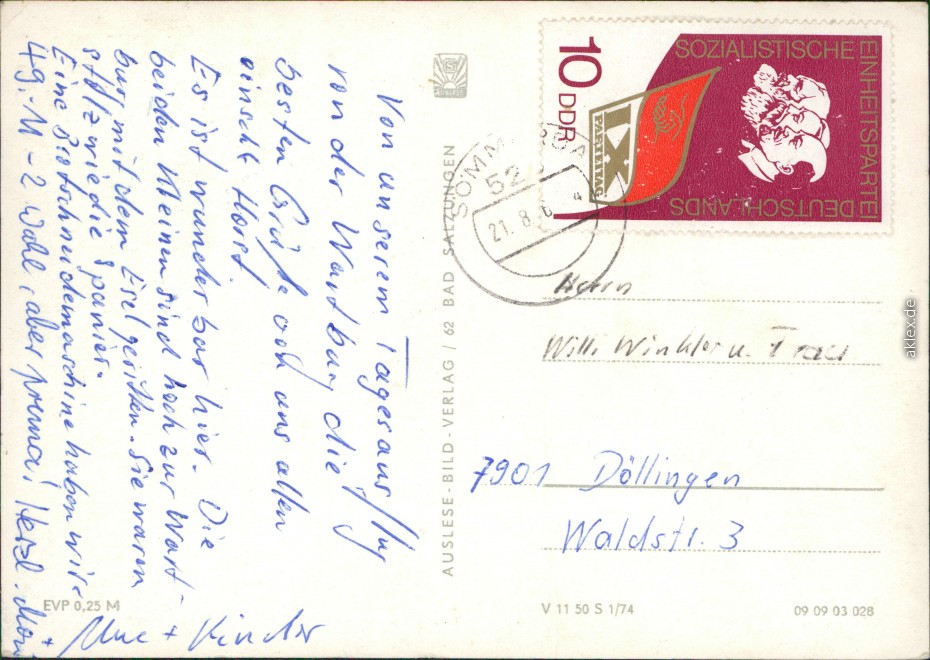 Von unserem Tagesausflug
von der Wartburg die
besten Grüße von uns allen
einschl. Horst.
Es ist wunderbar hier. Die
beiden Kleinen sind hoch zur Wart-
burg mit dem Esel geritten. Sie waren
stolz wie die Spanier.
Eine Brotschneidemaschine haben wir
49.M - 2. Wahl, aber prima! Herzl.
+ Kinder
EVP 0,25 M
AUSLESE-BILD-VERLAG / 62 BAD SALZUNGEN
10 DDR
SOZIALISTISCHE
EINHEITSPARTEI
DEUTSCHLANDS
IX
PARTEITAG
52
21. 8.
Herrn
Willi Winkler u. Frau
7901 Döllingen
Waldstr. 3
V 11 50 S 1/74
09 09 03 028
aklex.de